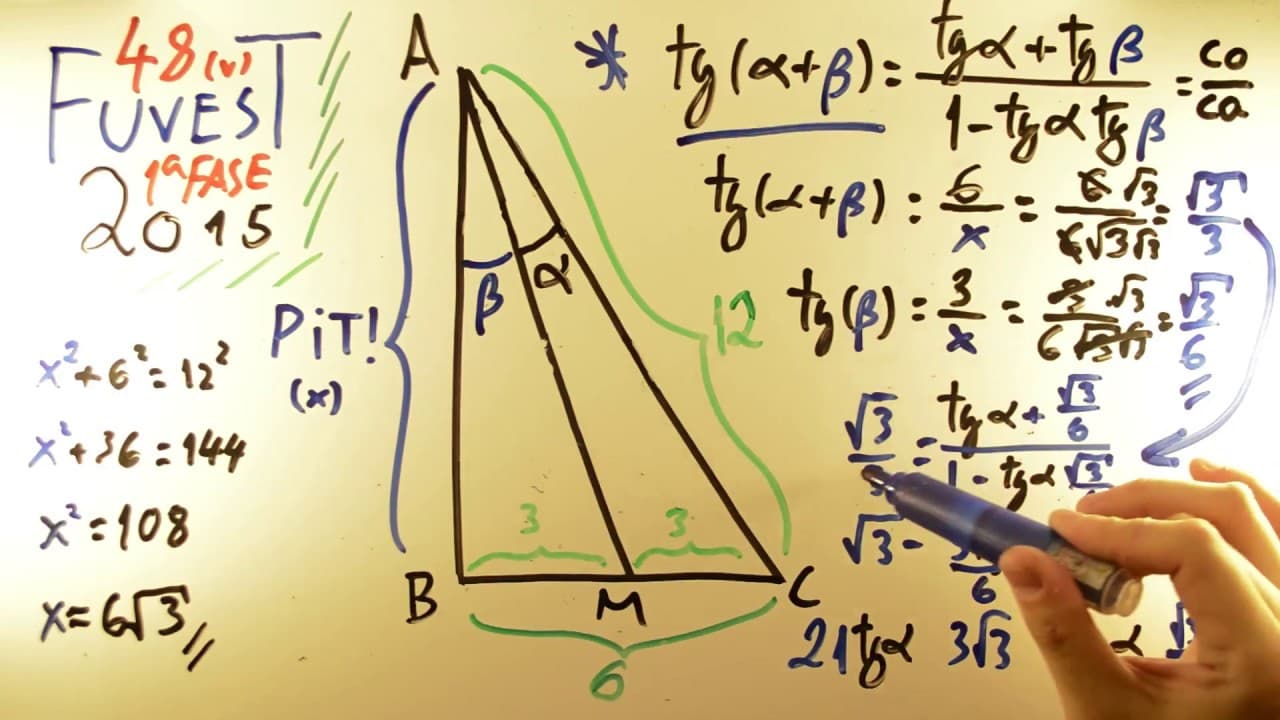 48 (v)
FUVEST
1ª FASE
2015
x² + 6² = 12²
x² + 36 = 144
x² = 108
x = 6√3 //
PiT!
(x)
A
β α
12
3 3
B M C
6
* tg(α+β) = (tgα + tgβ)/(1 - tgα tgβ) = co/ca
tg(α+β) = 6/x = 6√3/6√3√3 = √3/3
tg(β) = 3/x = 3√3/6√3√3 = √3/6 //
√3/ = (tgα + √3/6)/(1 - tgα √3/
√3 - /6
21tgα 3√3 α √3